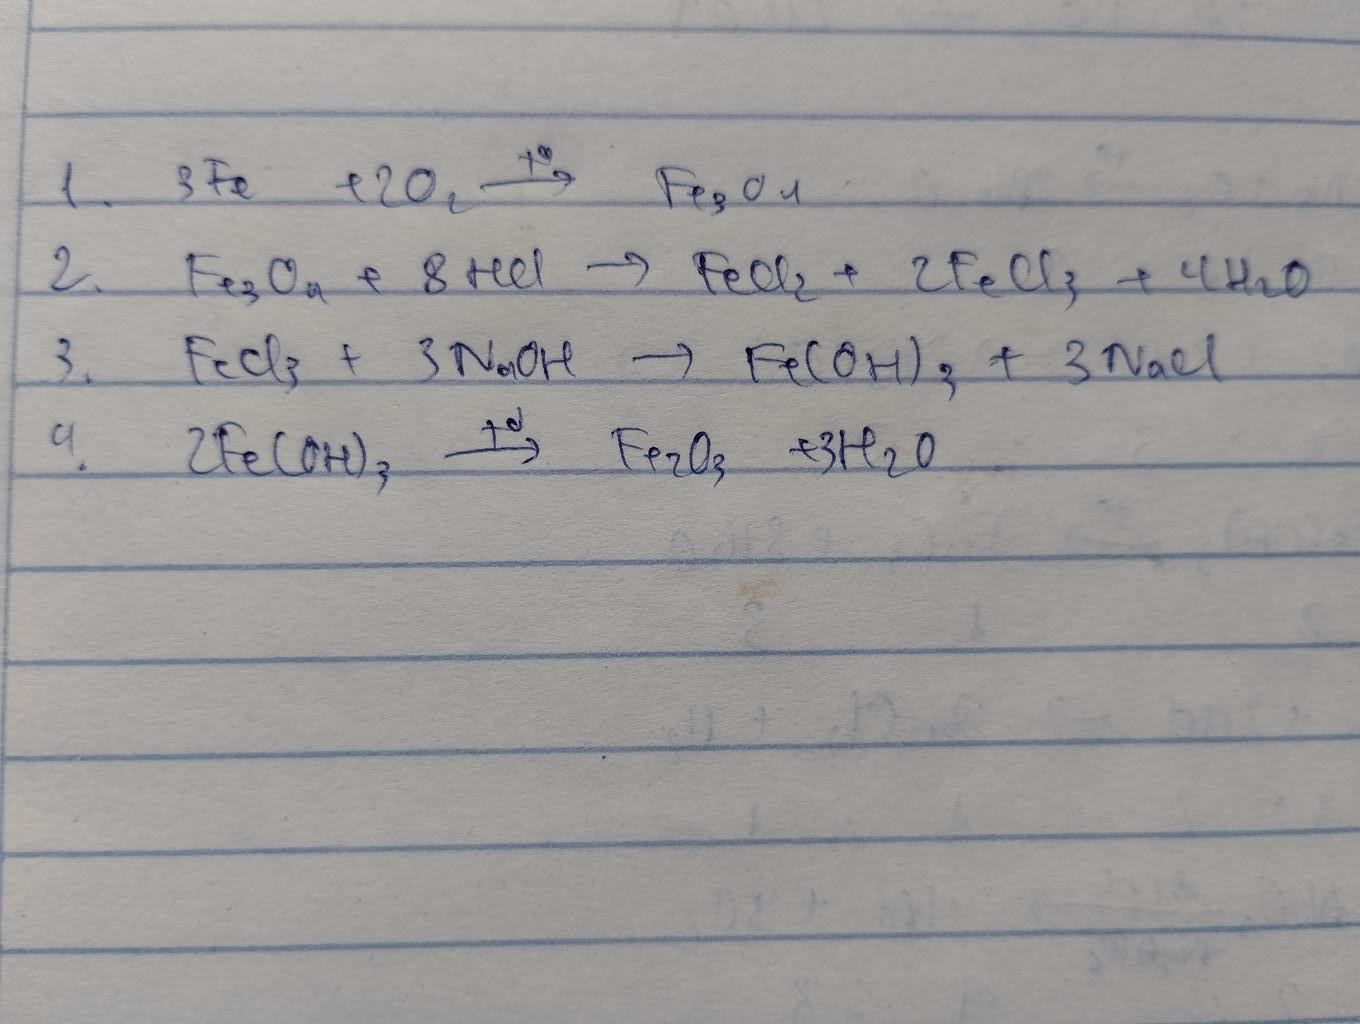 1. 3Fe + 2O₂ —t°→ Fe₃O₄
2. Fe₃O₄ + 8HCl → FeCl₂ + 2FeCl₃ + 4H₂O
3. FeCl₃ + 3NaOH → Fe(OH)₃ + 3NaCl
4. 2Fe(OH)₃ —t°→ Fe₂O₃ + 3H₂O